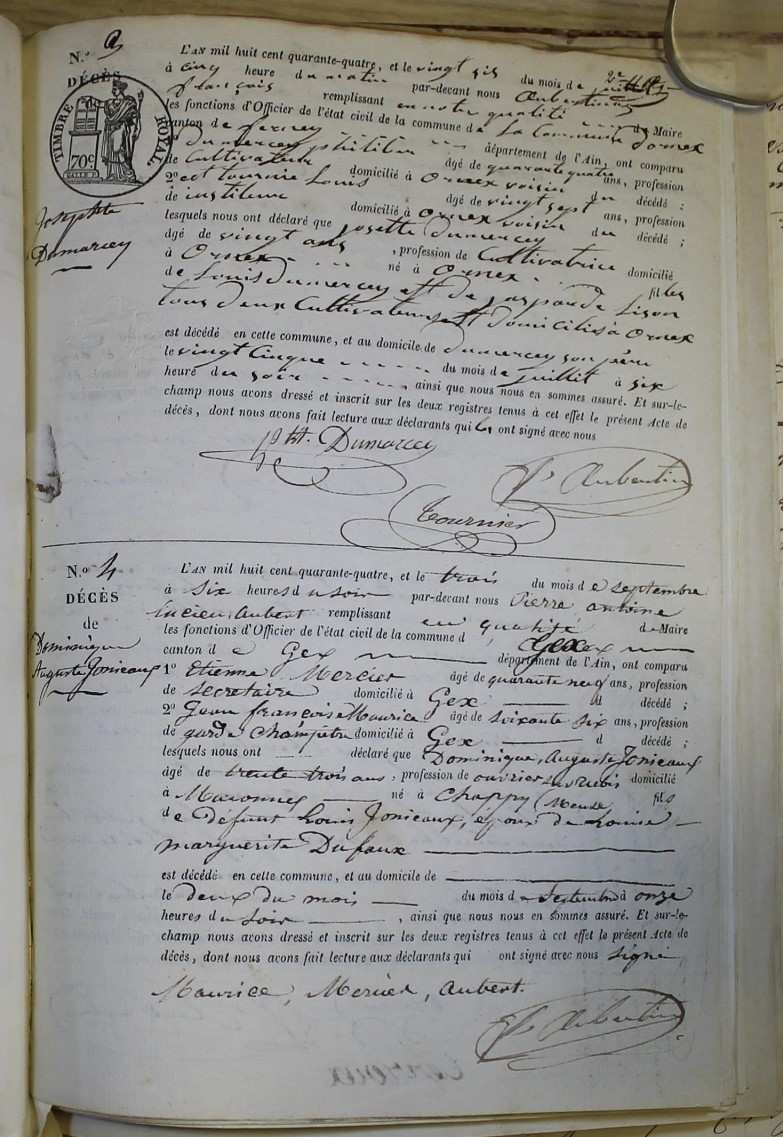 N.o 3
DÉCÈS
TIMBRE ROYAL
70c
Josephte
Dumarcey
L'AN mil huit cent quarante-quatre, et le vingt six du mois de juillet
à cinq heure du matin par-devant nous Aubertin
françois remplissant en notre qualité de Maire
les fonctions d'Officier de l'état civil de la commune de La Commune d'ornex
canton de ferney département de l'Ain, ont comparu
1o Dumercey phitibu âgé de quarante quatre ans, profession
de Cultivateur domicilié à Ornex voisin du décédé ;
2o et tournie Louis âgé de vingt sept ans, profession
de instituteur domicilié à Ornex voisin du décédé ;
lesquels nous ont déclaré que josette Dumercey
âgé de vingt ans , profession de Cultivatrice domicilié
à Ornex né à Ornex fil les
de Louis Dumercey et de Lison
tous deux Cultivateur et domiciliés à Ornex
est décédé en cette commune, et au domicile de dumercey son père
le vingt Cinque du mois de juillet à six
heure du soir ainsi que nous nous en sommes assuré. Et sur-le-
champ nous avons dressé et inscrit sur les deux registres tenus à cet effet le présent Acte de
décès, dont nous avons fait lecture aux déclarants qui ont signé avec nous
Dumarcey
Aubertin
Tournier
N.o 4
DÉCÈS
de
Dominique
Auguste Jonieaux
L'AN mil huit cent quarante-quatre, et le trois du mois de septembre
à six heures du soir par-devant nous Pierre antoine
Lucien Aubert remplissant en qualité de Maire
les fonctions d'Officier de l'état civil de la commune d Gex
canton de Gex département de l'Ain, ont comparu
1o Etienne Mercier âgé de quarante neuf ans, profession
de secretaire domicilié à Gex d décédé ;
2o Jean françois Maurice âgé de soixante six ans, profession
de garde Champetre domicilié à Gex d décédé ;
lesquels nous ont déclaré que Dominique, Auguste Jonieaux
âgé de trente trois ans , profession de ouvrier domicilié
à Maronnes né à Chappy (Meuse fils
de Defunt Louis Jonieaux, epoux de Louise
marguerite Dufaux
est décédé en cette commune, et au domicile de
le deux du mois du mois de Septembre à onze
heures du soir , ainsi que nous nous en sommes assuré. Et sur-le-
champ nous avons dressé et inscrit sur les deux registres tenus à cet effet le présent Acte de
décès, dont nous avons fait lecture aux déclarants qui ont signé avec nous signé
Maurice, Mercier, Aubert.
Aubertin